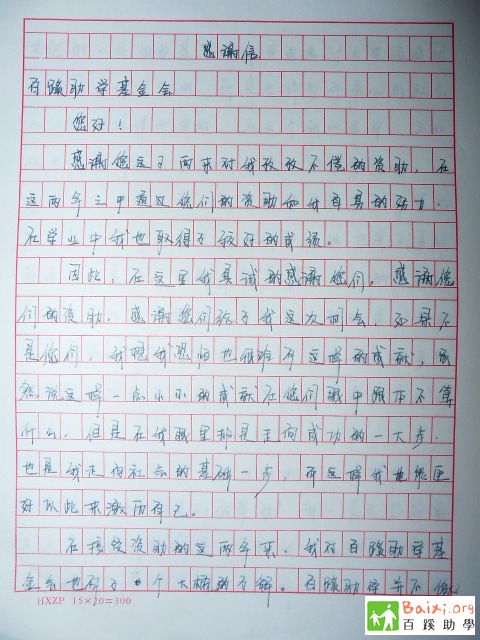 感谢信
百蹊助学基金会
您好！
感谢您这了两来对我孜孜不倦的资助，在
这两年之中通过你们的资助和我自身的努力，
在学业中我也取得了较好的成绩。
因此，在这里我真诚的感谢你们，感谢你
们的资助，感谢您们给了我这次机会，如果不
是您们，我想我恐怕也很难有这样的成就，虽
然说这样一点小小的成就在您们眼中跟本不算
什么，但是在我眼里却是走向成功的一大步，
也是我走向社会的基础一步，有这样我也能更
好以此来激历自己。
在接受资助的这两年来，我对百蹊助学基
金会也有了个大概的了解。百蹊助学并不像
HXZP 15×20=300
Baixi.org
百蹊助學